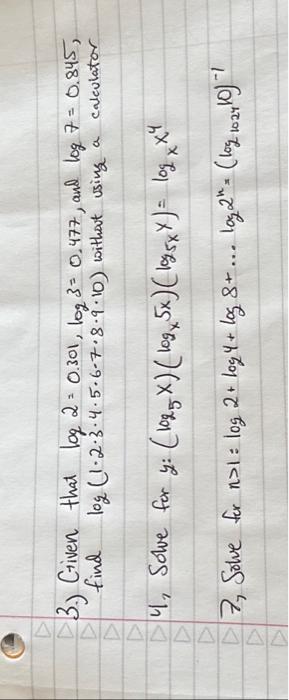 3.) Given that log 2 = 0.301, log 3 = 0.477, and log 7 = 0.845,
find log (1·2·3·4·5·6·7·8·9·10) without using a calculator
4, Solve for y: (log₅ X)(logₓ 5x)(log₅ₓ Y) = logₓ x⁴
7, Solve for n>1: log 2 + log 4 + log 8 + ... log 2ⁿ = (log₁₀₂₄ 10)⁻¹